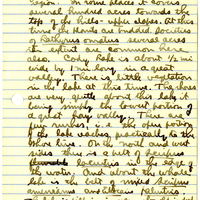 region. In some places it covers
several hundred acres towards the
top of the hills - upper slopes. At this
time the lands are budded
in extent are common here
also. Cody Lake is about ½ mi
wide by 1 mi. long in a great
valley. There is little vegetation
in the lake at this time. The shores
are very gentle about this lake, it
being simply the lowest portion of
a great hay valley. There are
few rushes, i.e. the open portion
of the lake reaches practically to the
shore line. On the north and west
sides there is a belt of Scirpus
in the edge of
the water, and about the whole
lake is the belt of mixed Scirpus
americanus and Scirpus